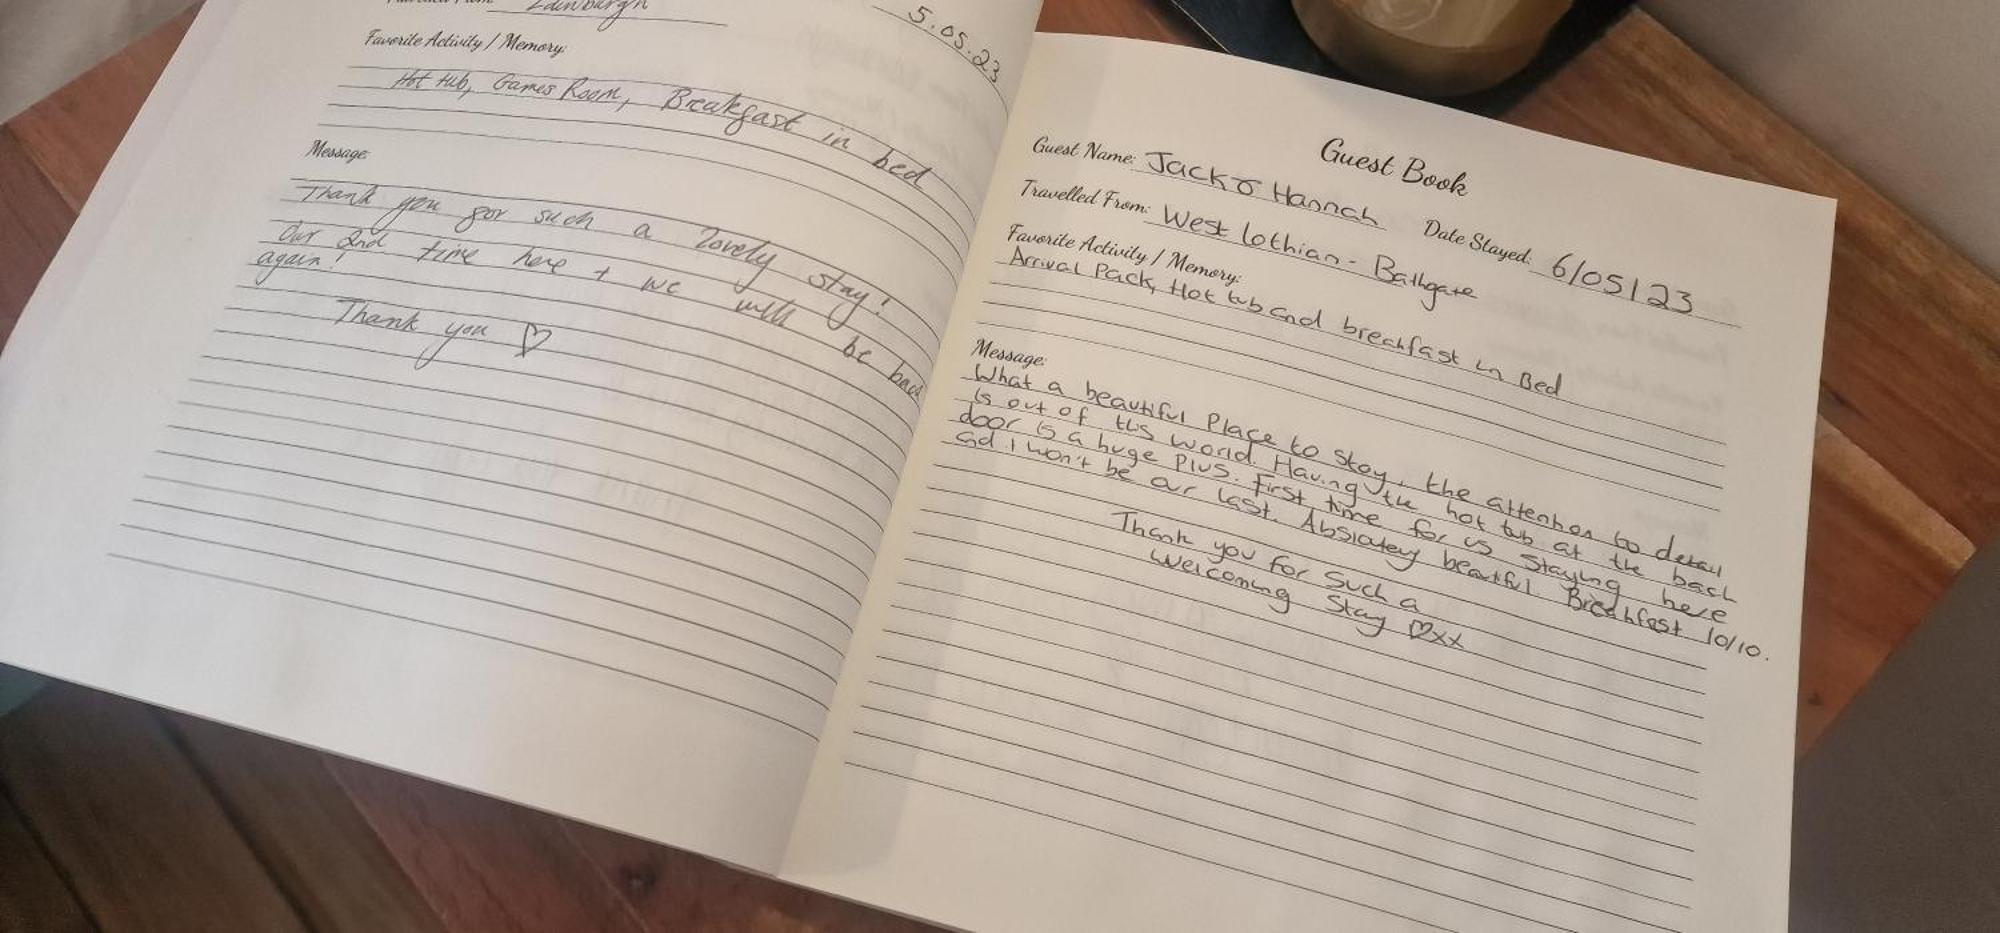 Edinburgh
5.05.23
Favorite Activity / Memory:
Hot tub, Games Room, Breakfast in bed
Message:
Thank you for such a lovely stay!
Our 2nd time here + we will be back
again!
Thank you ♡
Guest Book
Guest Name: Jack & Hannah
Date Stayed: 6/05/23
Travelled From: West Lothian - Bathgate
Favorite Activity / Memory:
Arrival Pack, Hot tub and breakfast in Bed
Message:
What a beautiful Place to stay, the attention to detail
is out of this world. Having the hot tub at the back
door is a huge Plus. First time for us Staying here
ad i won't be our last. Absolutey beatiful Breakfast 10/10.
Thank you for such a
Welcoming Stay ♡xx